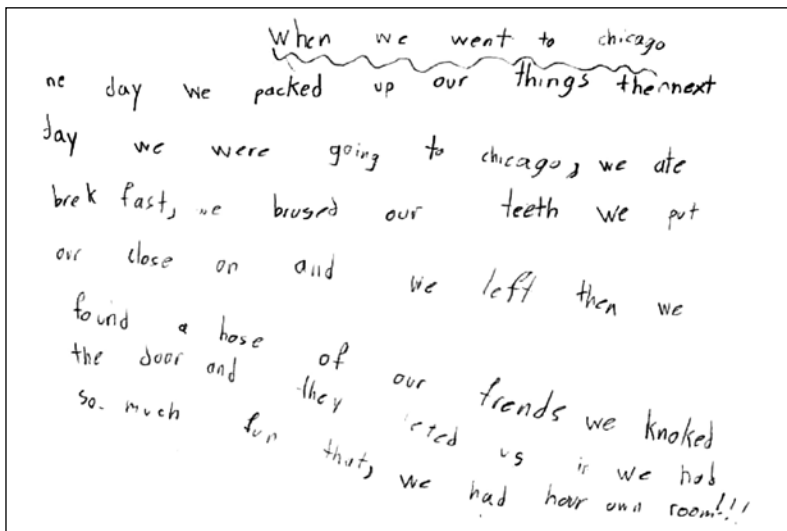 When we went to chicago
ne day we packed up our things thennext
day we were going to chicago, we ate
brek fast, we brused our teeth we put
our close on and we left then we
found a hose of our frends we knoked
the door and they leted us in we hab
so. much fun that, we had hour own room!!!